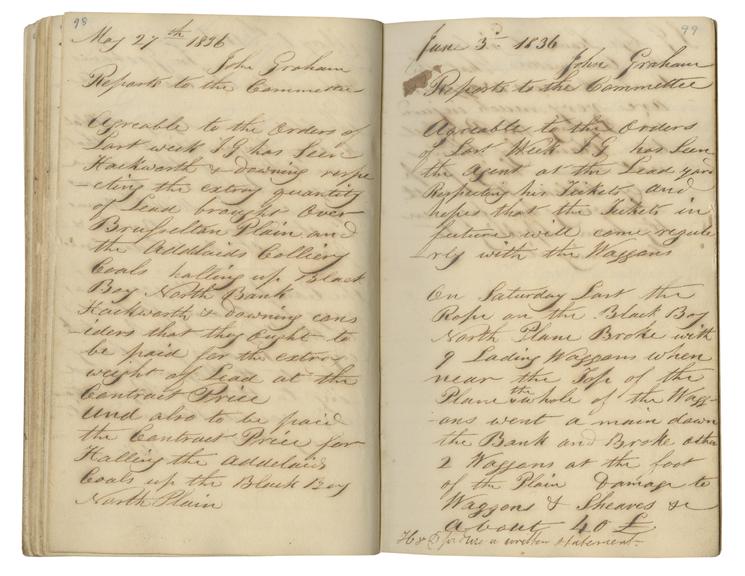 98
May 27th 1836
John Graham
Reports to the Committee
Agreable to the Orders of
Last week J G has Seen
Hackworth & Downing respe
-cting the extra quantity
of Lead brought Over
Brusselton Plain and
the Addelaids Colliery
Coals halling up Black
Boy North Bank
Hackworth & Downing cons
-iders that they Ought to
be paid for the extra
weight of Lead at the
Contract Price
And also to be paid
the Contract Price for
Halling the Addelaids
Coals up the Black Boy
North Plain
99
June 3d 1836
John Graham
Reports to the Committee
Agreable to the Orders
of Last Week J G has Seen
the Agent at the Lead yard
Respecting his Tickets and
hopes that the Tickets in
future will come regula
-rly with the Waggons
On Saturday Last the
Rope on the Black Boy
North Plane Broke with
9 Lading Waggons when
near the Top of the
Plane the whole of the Wagg-
-ons went a main down
the Bank and Broke other
2 Waggons at the foot
of the Plain Damage to
Waggons & Sheaves &c
About 40 £
H & D to produce a written statement.